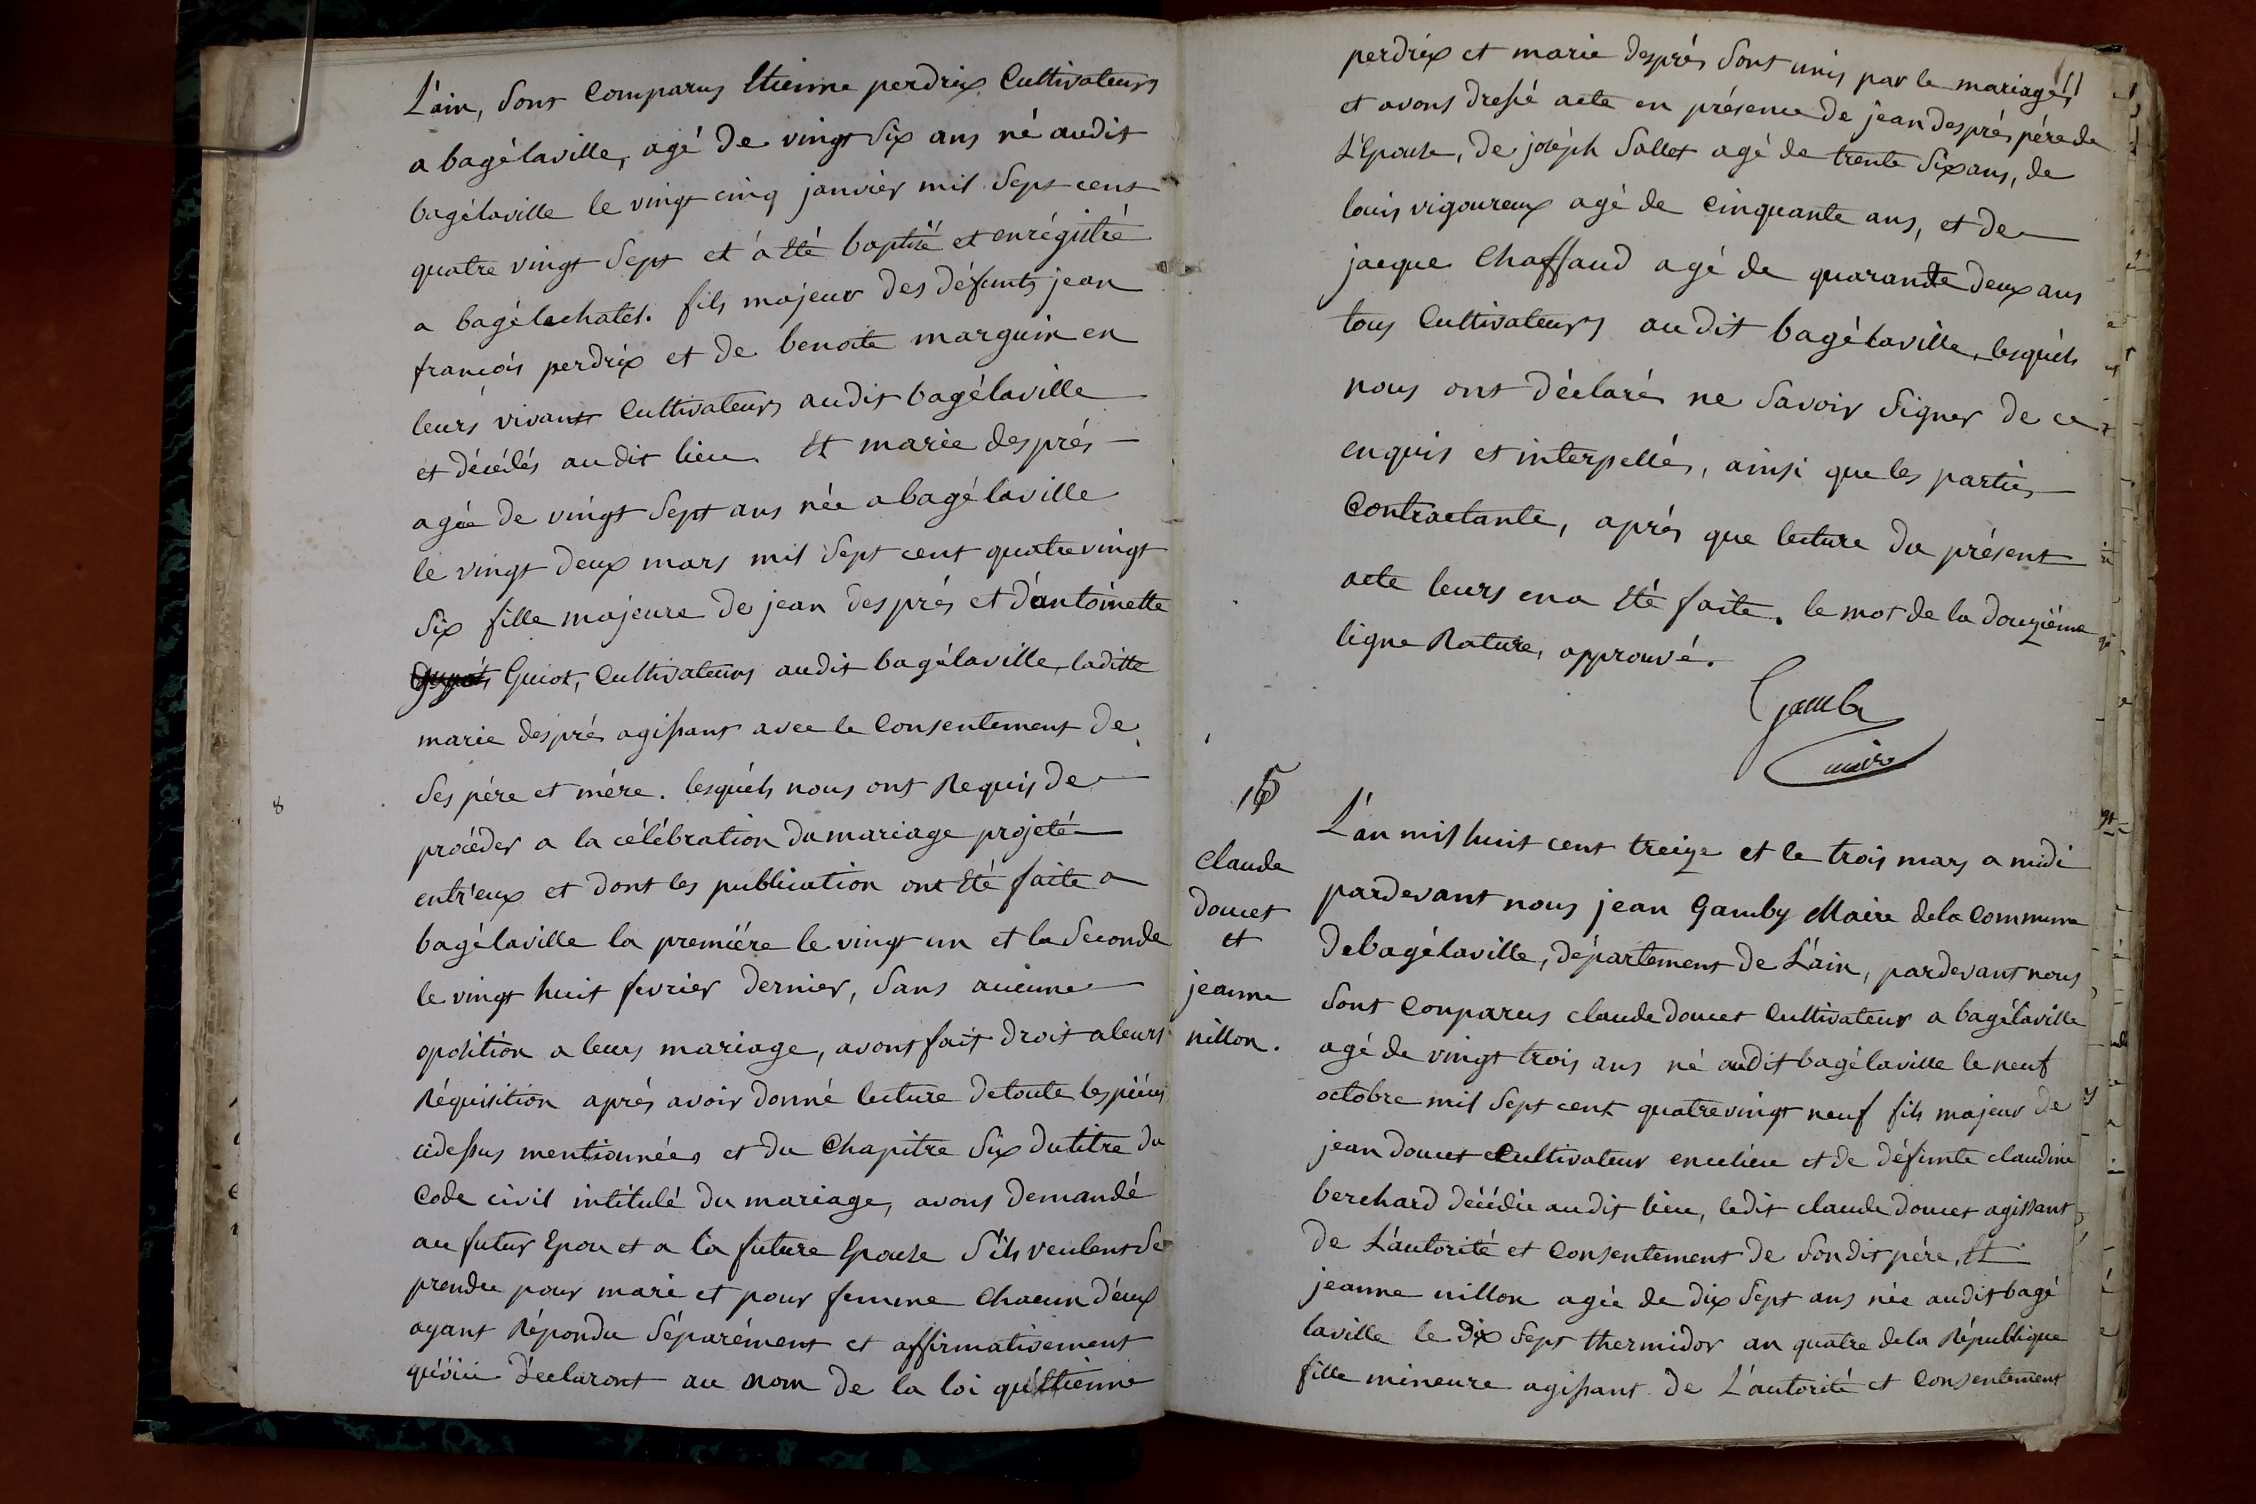 L'ain, sont comparus Etienne perdrix Cultivateurs
a bagélaville, agé de vingt six ans né audit
bagélaville le vingt cinq janvier mil sept cent
quatre vingt sept et á été baptisé et enrégistré
a bagélechatel. fils majeur des défunts jean
francois perdrix et de benoite marguin en
leurs vivants Cultivateurs audit bagélaville
et décédés audit lieu. Et marie després
agée de vingt sept ans née a bagélaville
le vingt deux mars mil sept cent quatrevingt
six fille majeure de jean després et d'antoinette
Guiot, Cultivateurs audit bagélaville, laditte
marie després agissant avec le Consentement de
ses pére et mére. lesquéls nous ont Requis de
procéder a la célébration du mariage projeté
entr'eux et dont les publication ont été faite a
bagélaville la premiére le vingt un et la seconde
le vingt huit fevrier dernier, sans aucune
oposition a leurs mariage, avons fait droit a leurs
Réquisition aprés avoir donné lecture de toute les piéces
cidessus mentionnées et du Chapitre six du titre du
Code civil intitulé du mariage, avons demandé
au futur Epou et a la future Epouse s'ils veulent se
prendre pour mari et pour femme Chacun d'eux
ayant Répondu séparément et affirmativement
qu'oui déclaront au nom de la loi qu'Etienne
8
perdrix et marie després sont unis par le mariage,
et avons dressé acte en présence de jean després pére de
L'Epouse, de joséph Sallet agé de trente six ans, de
louis vigoureux agé de Cinquante ans, et de
jacque Chaffaud agé de quarante deux ans
tous Cultivateurs audit bagélaville, lesquéls
nous ont déclarés ne savoir signer de ce
enquis et interpellés, ainsi que les parties
Contractante, aprés que lecture du présent
acte leurs en a été faite. le mot de la douziéme
ligne Raturé, approuvé.
Gamby
maire
15
claude
doucet
et
jeanne
nillon.
L'an mil huit cent treize et le trois mars a midi
pardevant nous jean Gamby Maire de la Commune
de bagélaville, département de L'ain, pardevant nous
sont Conparus claude doucet Cultivateur a bagélaville
agé de vingt trois ans né audit bagélaville le neuf
octobre mil sept cent quatrevingt neuf fils majeur de
jean doucet Cultivateur en ce lieu et de défunte claudine
berchard décédée audit lieu, ledit claude doucet agissant
de L'autorité et Consentement de sondit pére, Et
jeanne nillon agée de dix sept ans née audit bagé
laville le dix sept thermidor an quatre de la République
fille mineure agissant de L'autorité et Consentement